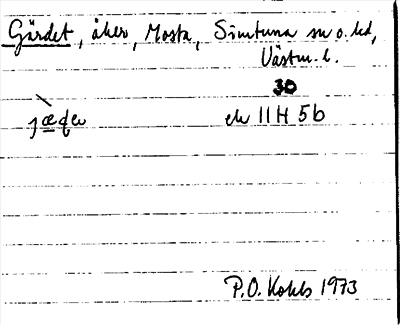 Gärdet, åker, Mosta, Simtuna sn o. hd,
Västm. l.
30
ek 11 H 5b
P.O. Kohls 1973